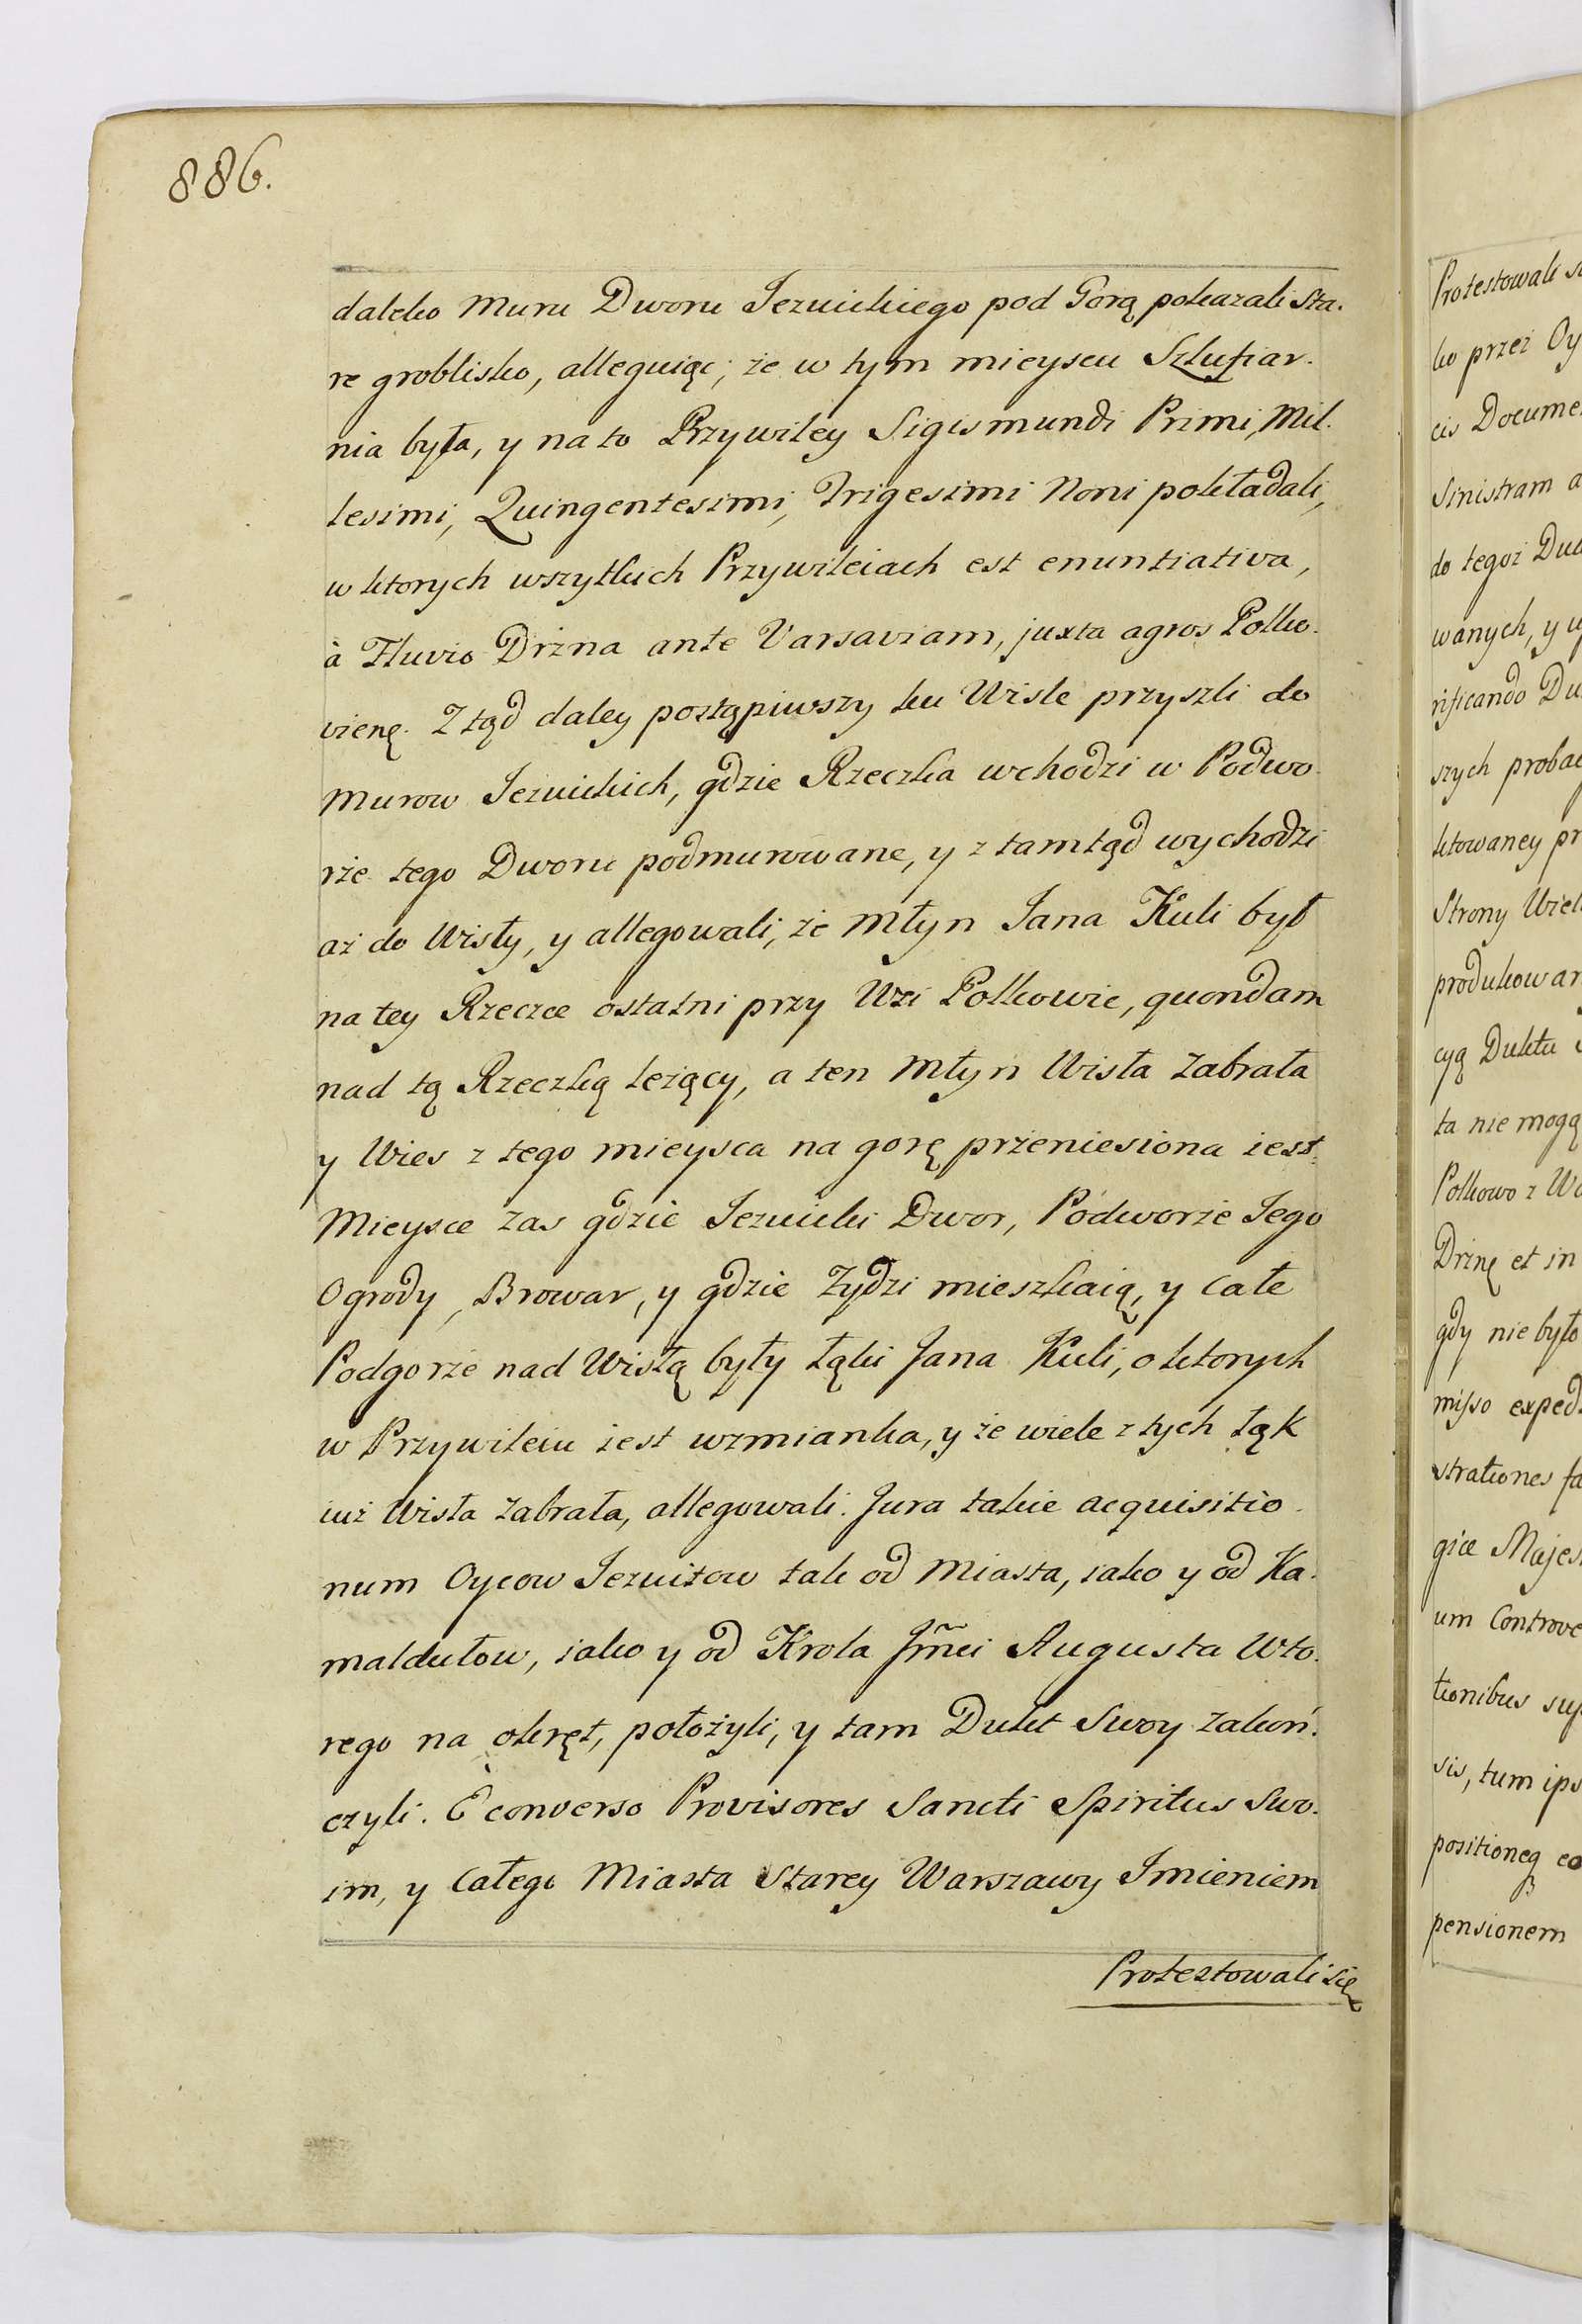 886.
daleko Muru Dworu Jezuickiego pod Gorą pokazali sta-
re groblisko, alleguiąc, że w tym mieyscu Szlufiar-
nia była, y na to Przywiley Sigismundi Primi, Mil-
lesimi, Quingentesimi, Trigesimi Noni pokładali,
w ktorych wszytkich Przywileiach est enuntiativa,
à Fluvio Drżna ante Varsaviam, juxta agros Polko-
vienę. Ztąd daley postąpiwszy ku Wisle przyszli do
Murow Jezuickich, gdzie Rzeczka wchodzi w Podwo-
rże tego Dworu podmurowane, y z tamtąd wychodzi
aż do Wisły, y allegowali, że Młyn Jana Kuli był
na tey Rzeczce ostatni przy Wsi Polkowie, quondam
nad tą Rzeczką leżący, a ten Młyn Wisła zabrała
y Wies z tego mieysca na gorę przeniesiona iest.
Mieysce zas gdzie Jezuicki Dwor, Podworże Jego
Ogrody, Browar, y gdzie Zydzi mieszkaią, y całe
Podgorże nad Wisłą były łąki Jana Kuli, o ktorych
w Przywileiu iest wzmianka, y że wiele z tych łąk
iuż Wisła zabrała, allegowali. Jura takie acquisitio-
num Oycow Jezuitow tak od Miasta, iako y od Ka-
maldułow, iako y od Krola Jm̃ci Augusta Wto-
rego na okręt, położyli, y tam Dukt Swoy zakoń-
czyli. È converso Provisores Sancti Spiritus Swo-
im, y całego Miasta Starey Warszawy Imieniem
Protestowali się
Protestowali
ko przez
cis
Sinistram
do tegoż
wanych, y
rificando
szych
ktowaney
Strony
cyą Duktu
ta nie mogą
Polkowo z
Drżnę et in
gdy nie było
misso
strationes
giæ
um
tionibus
sis, tum
positioneq
pensionem